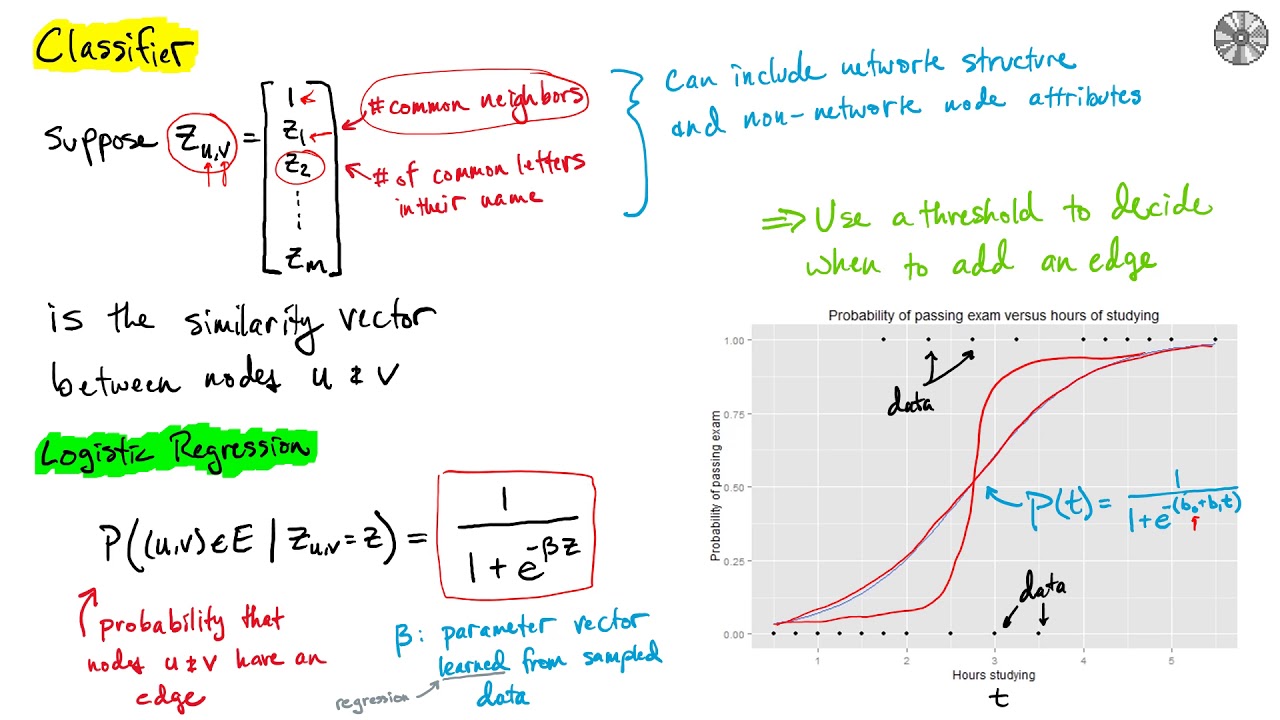 Classifier
Suppose Z_{u,v} = [1 z_1 z_2 ⋮ z_m]
# common neighbors
# of common letters
in their name
Can include network structure
and non-network node attributes
⇒ Use a threshold to decide
when to add an edge
is the similarity vector
between nodes u & v
Logistic Regression
P((u,v) ∈ E | Z_{u,v} = z) = 1 / (1 + e^{-βz})
probability that
nodes u & v have an
edge
β: parameter vector
learned from sampled
data
regression
Probability of passing exam versus hours of studying
Probability of passing exam
1.00
0.75
0.50
0.25
0.00
data
P(t) = 1 / (1 + e^{-(b_0+b_1t)})
data
1 2 3 4 5
Hours studying
t